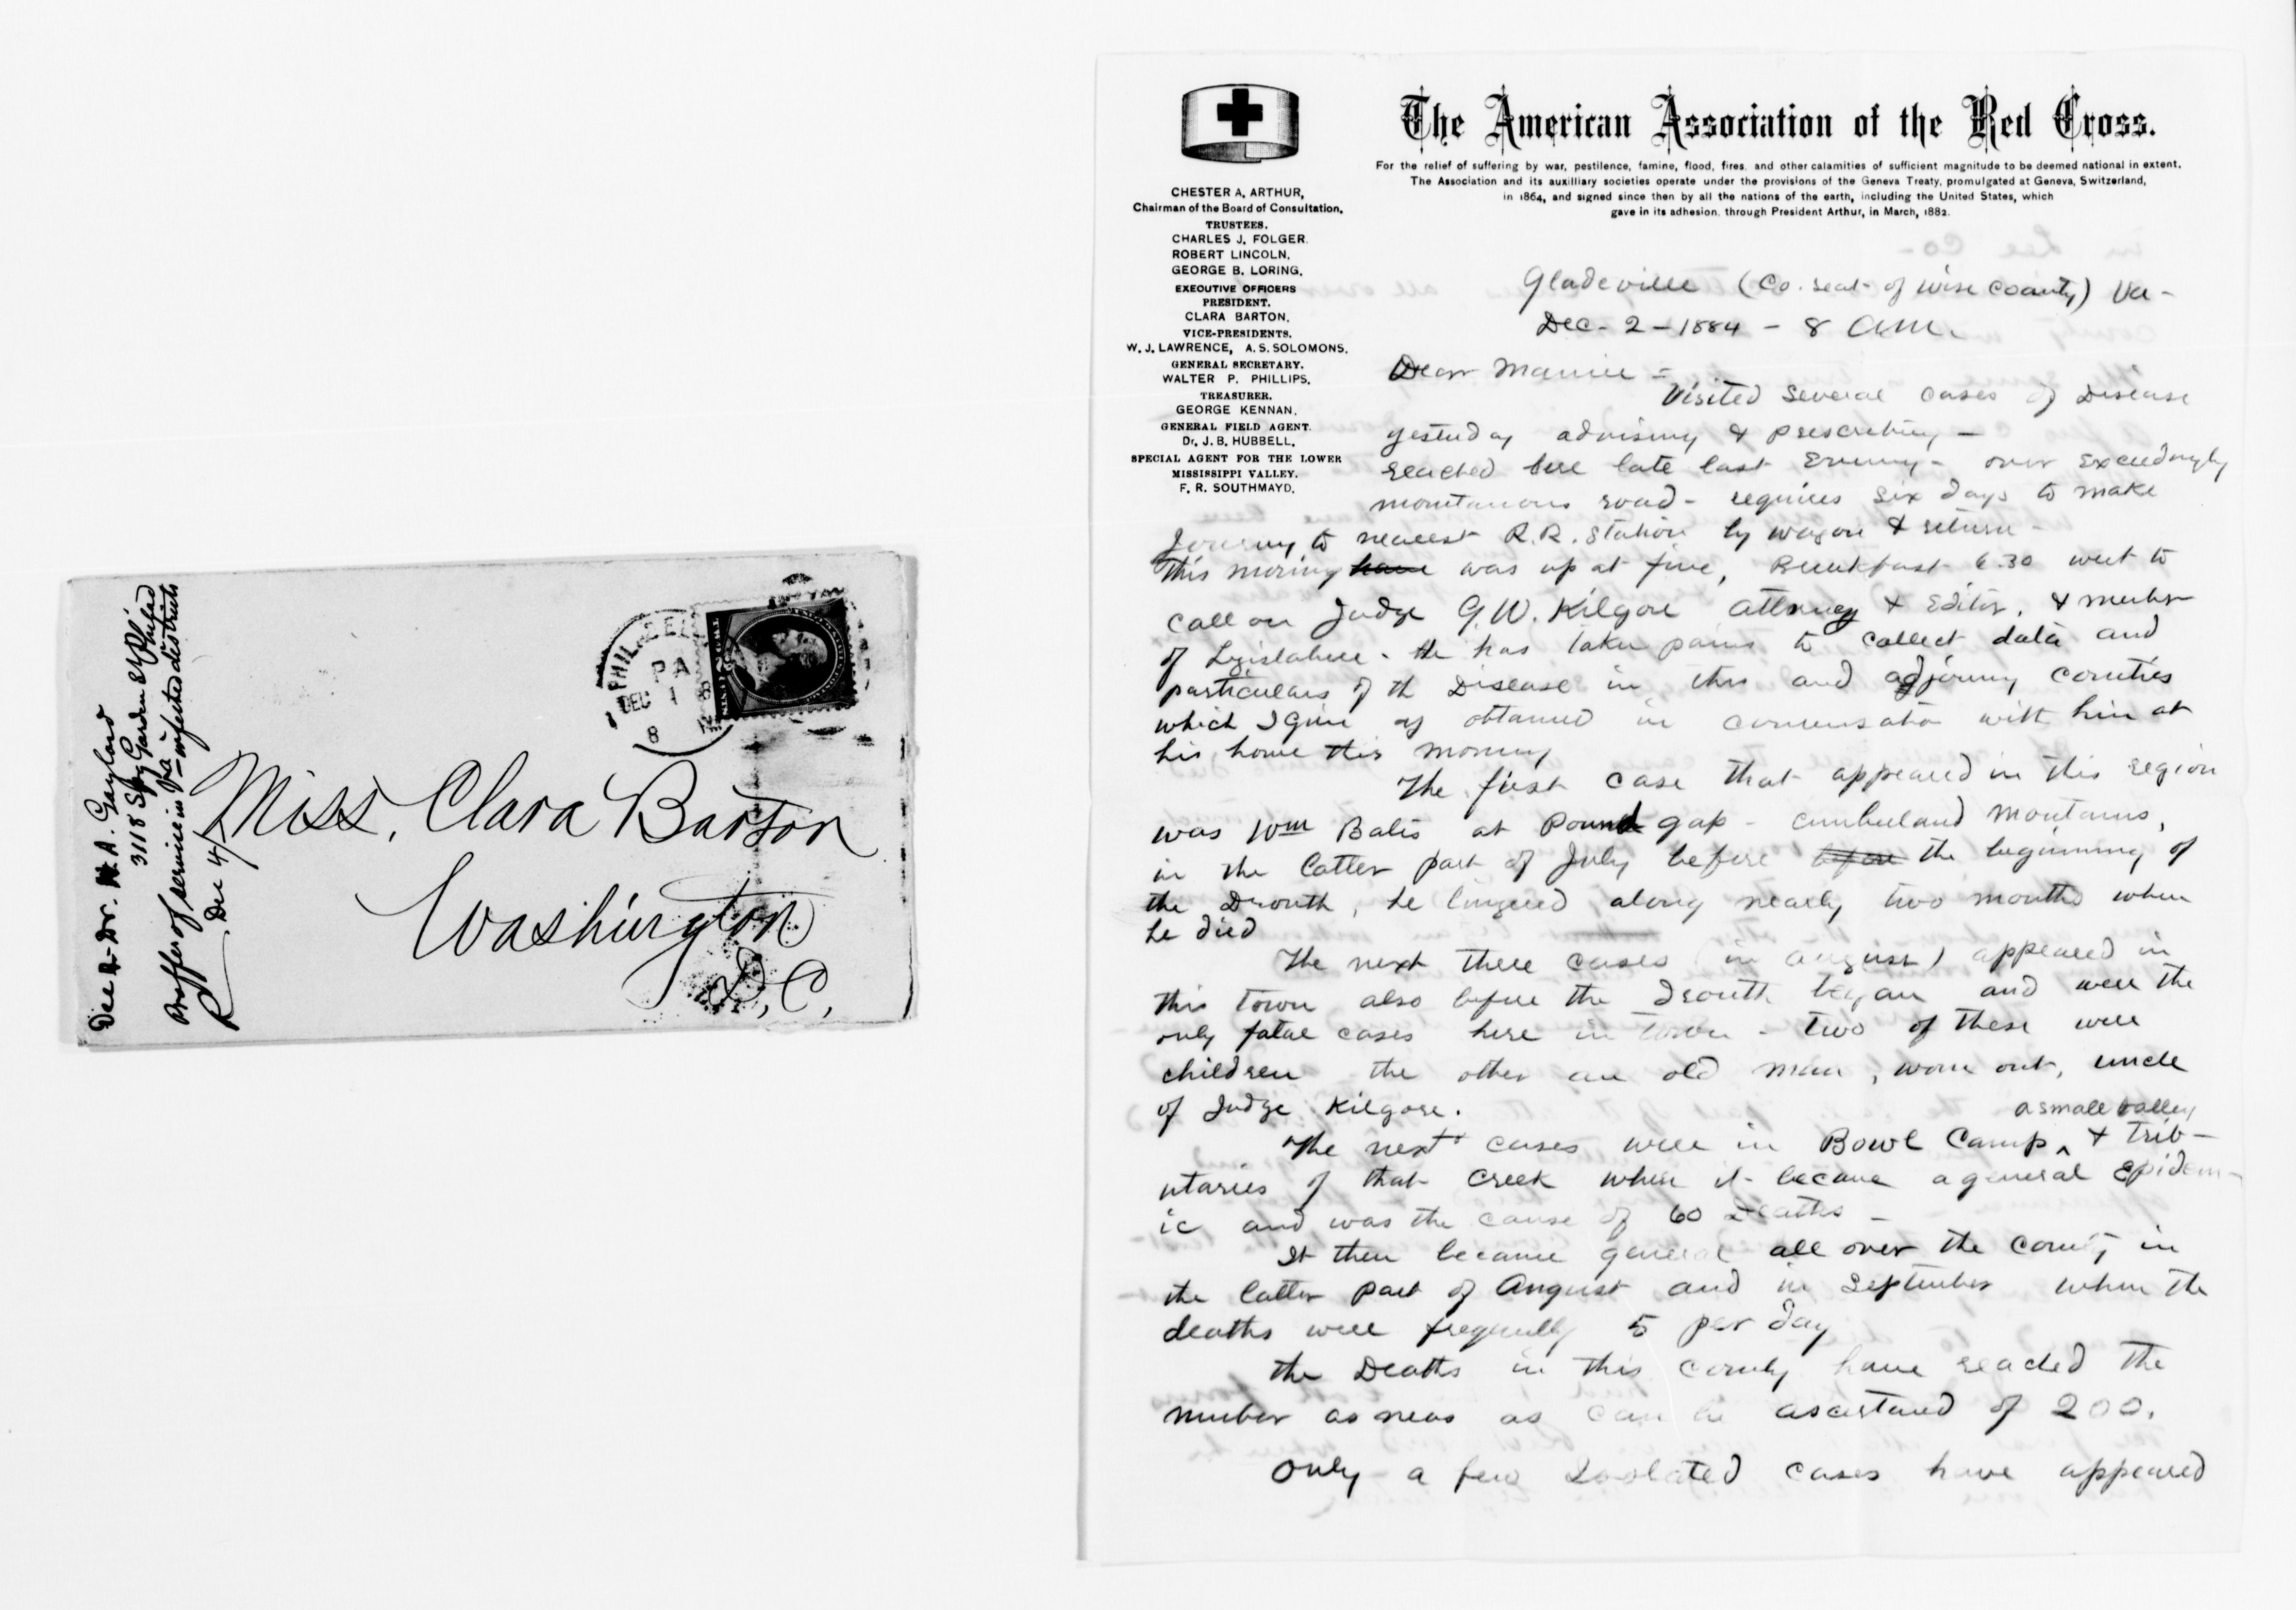 Dec 2 - Dr. H. A. Gaylord
3118 Spg Garden St Philad
Proffer of service in Va - infected districts
R Dec 4/
PHILADEL
PA
DEC 1
8
Miss. Clara Barton
Washington
D.C.
The American Association of the Red Cross.
For the relief of suffering by war, pestilence, famine, flood, fires, and other calamities of sufficient magnitude to be deemed national in extent.
The Association and its auxilliary societies operate under the provisions of the Geneva Treaty, promulgated at Geneva, Switzerland,
in 1864, and signed since then by all the nations of the earth, including the United States, which
gave in its adhesion, through President Arthur, in March, 1882.
CHESTER A. ARTHUR,
Chairman of the Board of Consultation.
TRUSTEES.
CHARLES J. FOLGER.
ROBERT LINCOLN.
GEORGE B. LORING.
EXECUTIVE OFFICERS
PRESIDENT.
CLARA BARTON.
VICE-PRESIDENTS.
W. J. LAWRENCE, A. S. SOLOMONS.
GENERAL SECRETARY.
WALTER P. PHILLIPS.
TREASURER.
GEORGE KENNAN.
GENERAL FIELD AGENT.
Dr. J. B. HUBBELL.
SPECIAL AGENT FOR THE LOWER
MISSISSIPPI VALLEY.
F. R. SOUTHMAYD.
Gladeville (Co. seat of Wise County) Va -
Dec - 2 - 1884 - 8 A.M.
Dear Mamie =
Visited several cases of Disease
yesterday advising & prescribing -
reached here late last Evening - over exceedingly
mountanous road - requires six days to make
Journey to nearest R.R. Station by wagon & return -
This morning have was up at five, Breakfast 6.30 went to
call on Judge G. W. Kilgore attorney & Editor, & member
of Legislature. He has taken pains to collect data and
particulars of th Disease in this and adjoining counties
which I give as obtained in conversation with him at
his home this morning
The first case that appeared in this region
was Wm Balis at Pound gap - Cumberland Mountains,
in the latter part of July before before the beginning of
the Drouth, he lingered along nearly two months when
he died
The next three cases (in august) appeared in
this town also before the drouth began and were the
only fatal cases here in town - two of these were
children the other an old man, worn out, uncle
of Judge Kilgore.
a small valley
The next cases were in Bowl Camp ^ & trib-
utaries of that Creek when it became a general Epidem-
ic and was the cause of 60 Deaths -
It then became general all over the County in
the latter part of August and in September when the
deaths were frequently 5 per day
the Deaths in this County have reached the
number as near as can be ascertained of 200.
Only a few Isolated cases have appeared